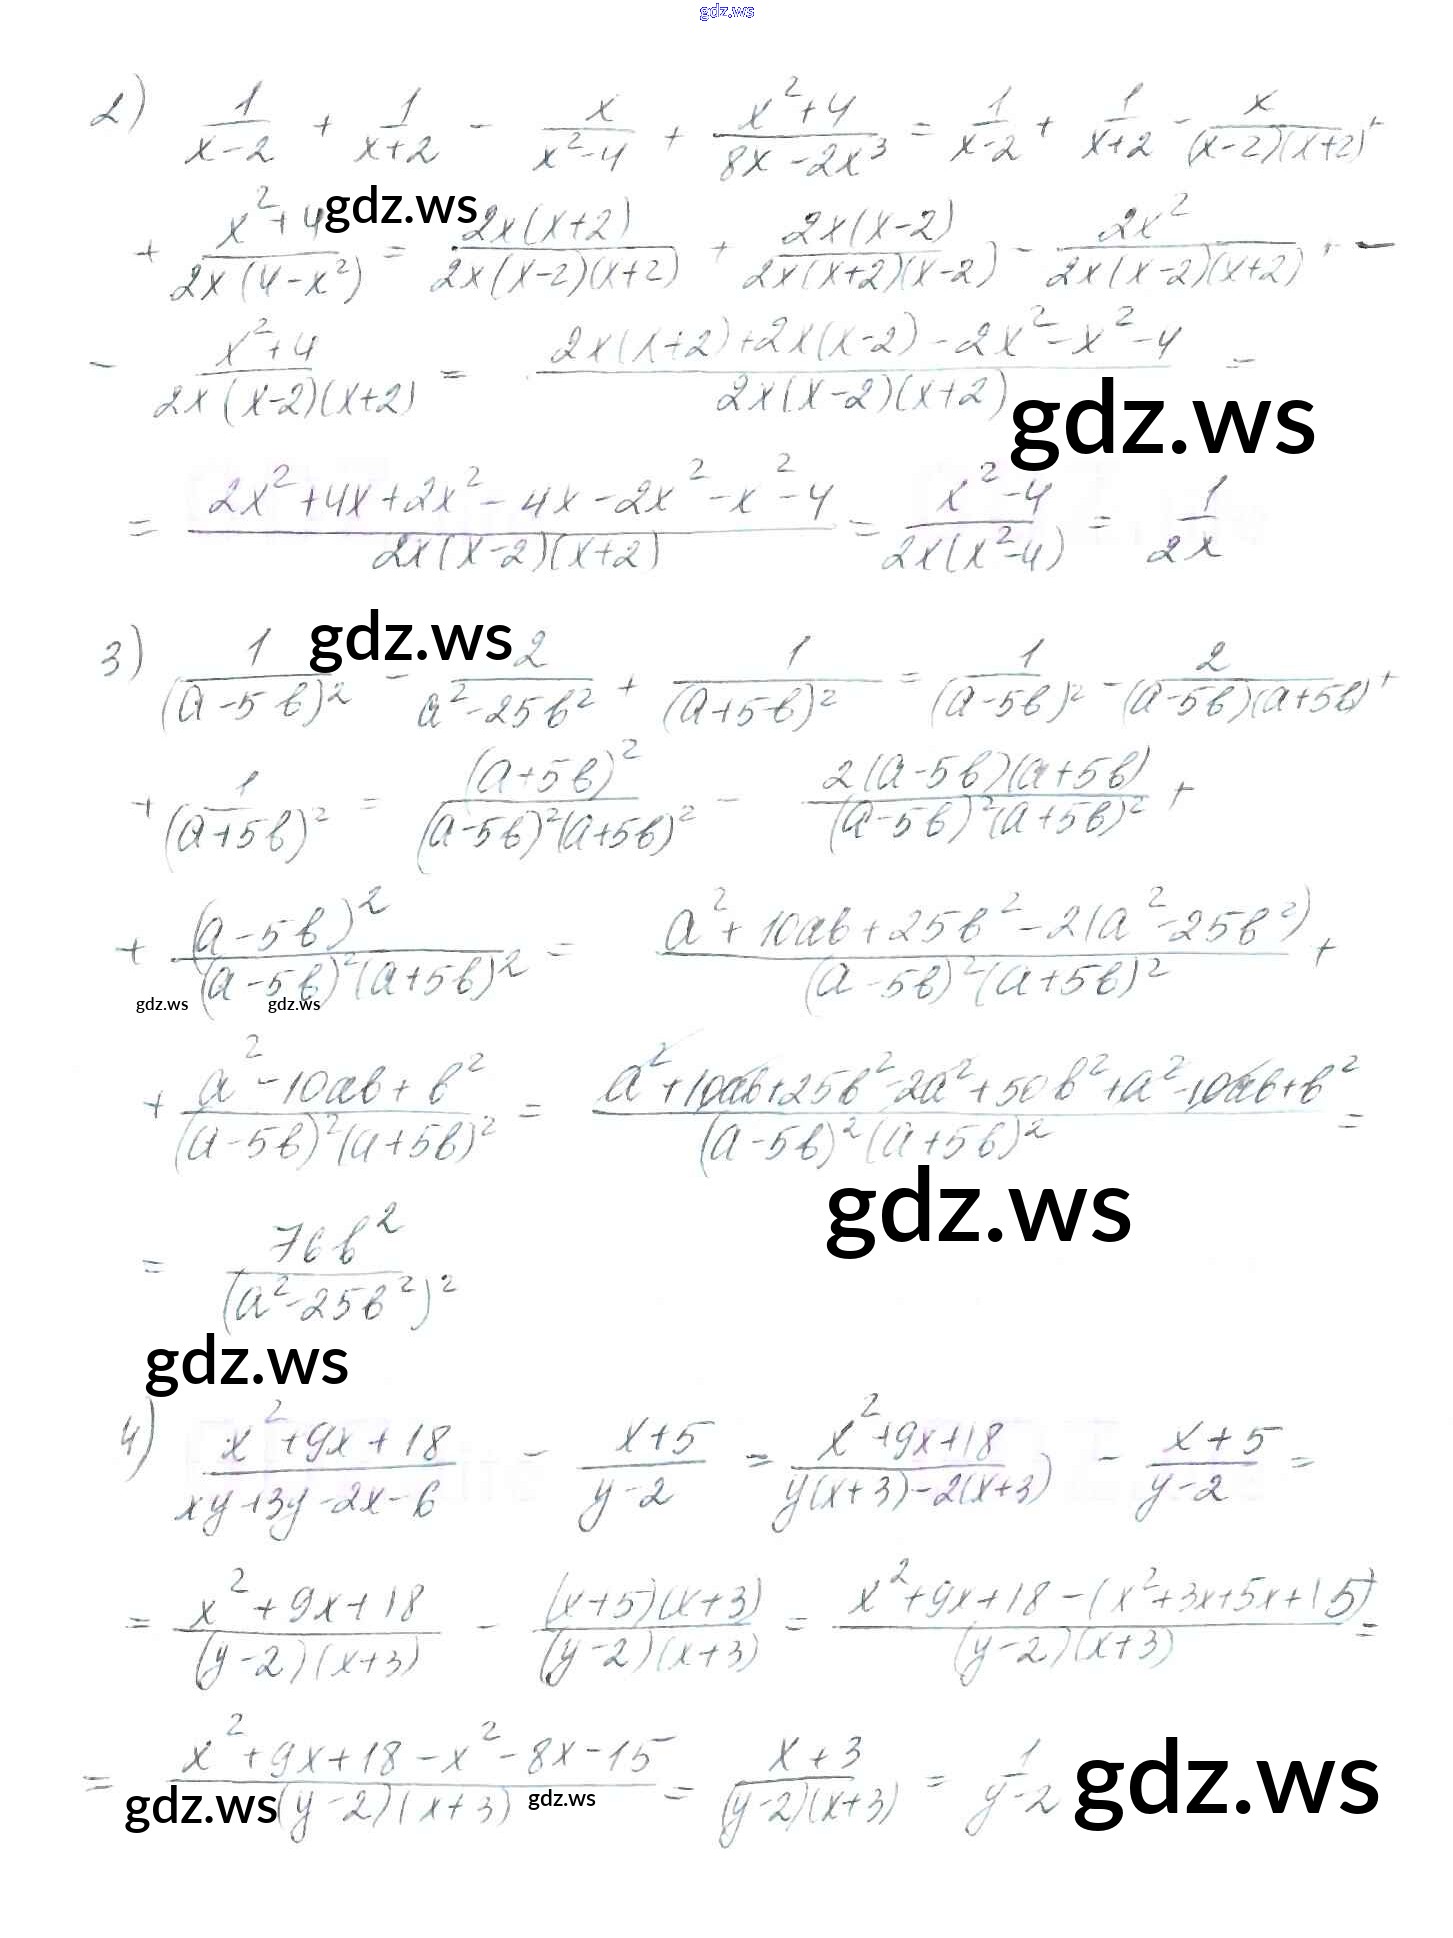 gdz.ws
2) 1/(x-2) + 1/(x+2) - x/(x²-4) + (x²+4)/(8x-2x³) = 1/(x-2) + 1/(x+2) - x/((x-2)(x+2)) +
+ (x²+4)/(2x(4-x²)) = 2x(x+2)/(2x(x-2)(x+2)) + 2x(x-2)/(2x(x+2)(x-2)) - 2x²/(2x(x-2)(x+2)) + -
gdz.ws
- (x²+4)/(2x(x-2)(x+2)) = (2x(x+2)+2x(x-2)-2x²-x²-4)/(2x(x-2)(x+2)) =
gdz.ws
= (2x²+4x+2x²-4x-2x²-x²-4)/(2x(x-2)(x+2)) = (x²-4)/(2x(x²-4)) = 1/(2x)
gdz.ws
3) 1/(a-5b)² - 2/(a²-25b²) + 1/(a+5b)² = 1/(a-5b)² - 2/((a-5b)(a+5b)) +
+ 1/(a+5b)² = (a+5b)²/((a-5b)²(a+5b)²) - 2(a-5b)(a+5b)/((a-5b)²(a+5b)²) +
+ (a-5b)²/((a-5b)²(a+5b)²) = (a²+10ab+25b²-2(a²-25b²))/((a-5b)²(a+5b)²) +
gdz.ws gdz.ws
+ (a²-10ab+b²)/((a-5b)²(a+5b)²) = (a²+10ab+25b²-2a²+50b²+a²-10ab+b²)/((a-5b)²(a+5b)²) =
gdz.ws
= 76b²/(a²-25b²)²
gdz.ws
4) (x²+9x+18)/(xy+3y-2x-6) - (x+5)/(y-2) = (x²+9x+18)/(y(x+3)-2(x+3)) - (x+5)/(y-2) =
= (x²+9x+18)/((y-2)(x+3)) - (x+5)(x+3)/((y-2)(x+3)) = (x²+9x+18-(x²+3x+5x+15))/((y-2)(x+3)) =
= (x²+9x+18-x²-8x-15)/((y-2)(x+3)) = (x+3)/((y-2)(x+3)) = 1/(y-2)
gdz.ws gdz.ws gdz.ws